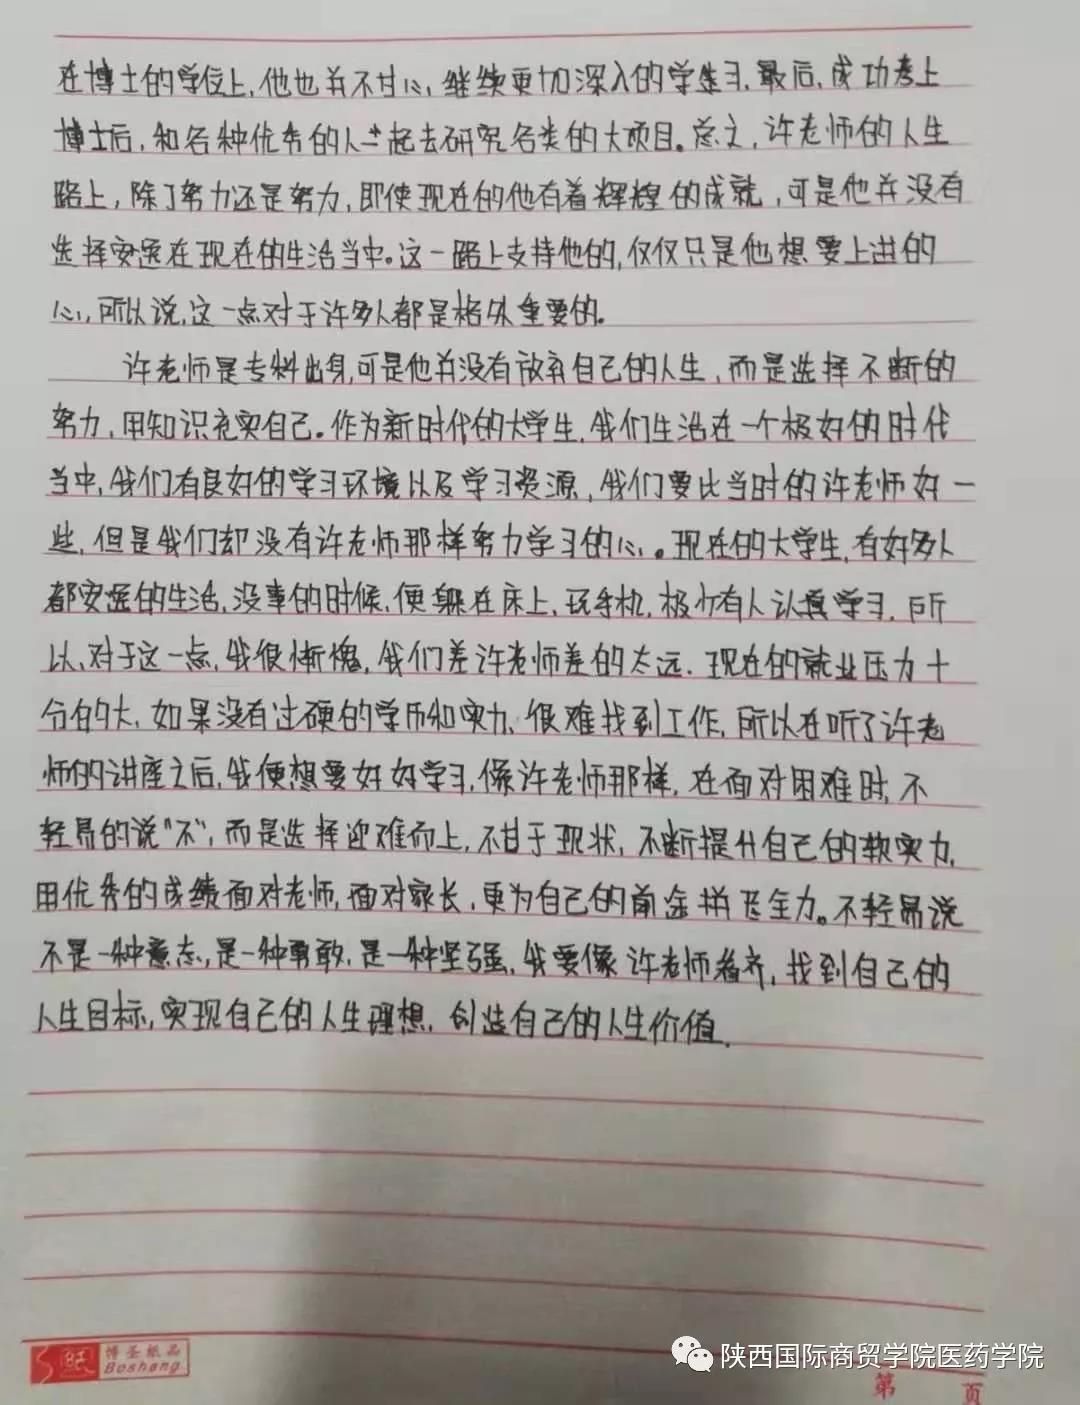 在博士的学位上,他也并不甘心,继续更加深入的学习,最后,成功考上
博士后,和各种优秀的人一起去研究各类的大项目。总之,许老师的人生
路上,除了努力还是努力,即使现在的他有着辉煌的成就,可是他并没有
选择安逸在现在的生活当中。这一路上支持他的,仅仅只是他想要上进的
心,所以说,这一点对于许多人都是格外重要的。
许老师是专科出身,可是他并没有放弃自己的人生,而是选择不断的
努力,用知识充实自己。作为新时代的大学生,我们生活在一个极好的时代
当中,我们有良好的学习环境以及学习资源,我们要比当时的许老师好一
些,但是我们却没有许老师那样努力学习的心。现在的大学生,有好多人
都安逸的生活,没事的时候,便躲在床上,玩手机,极少有人认真学习,所
以,对于这一点,我很惭愧,我们差许老师差的太远.现在的就业压力十
分的大,如果没有过硬的学历和实力,很难找到工作,所以在听了许老
师的讲座之后,我便想要好好学习,像许老师那样,在面对困难时,不
轻易的说“不”,而是选择迎难而上,不甘于现状,不断提升自己的软实力,
用优秀的成绩面对老师,面对家长,更为自己的前途拼尽全力。不轻易说
不是一种意志,是一种勇敢,是一种坚强,我要像许老师看齐,找到自己的
人生目标,实现自己的人生理想,创造自己的人生价值.
纸
博圣纸品
Bosheng
陕西国际商贸学院医药学院
第 页